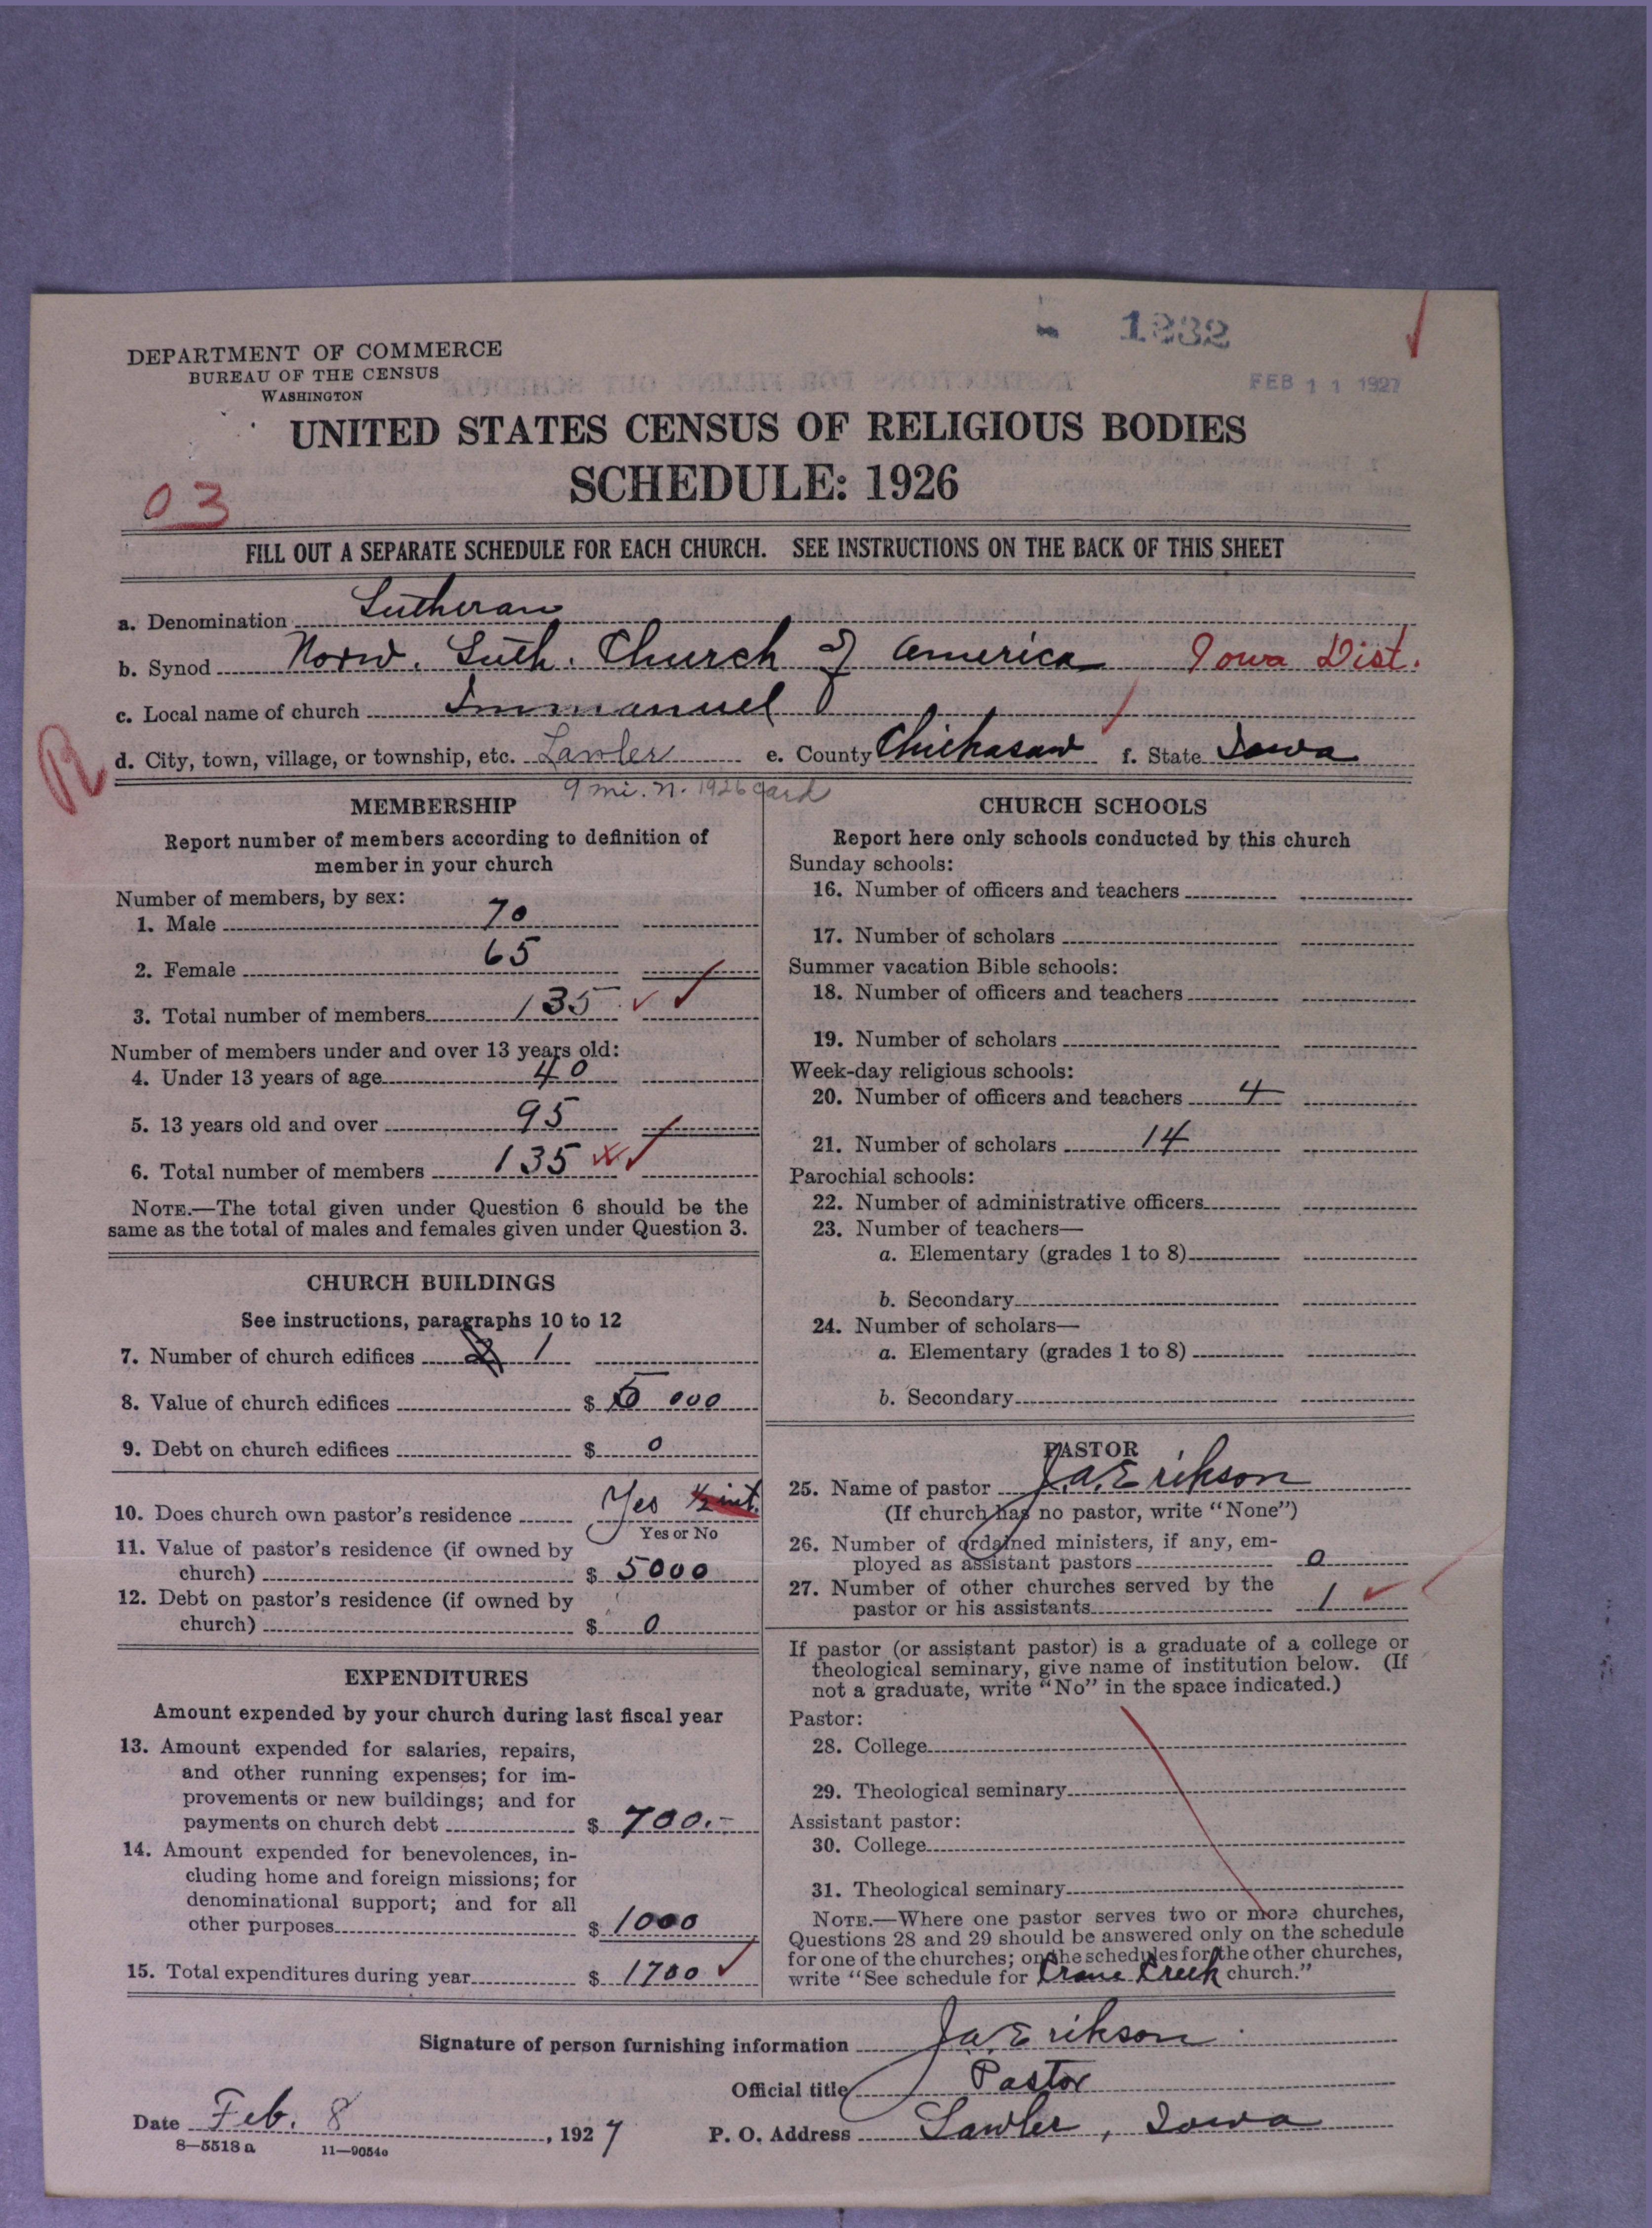 1232
FEB 11 1927
DEPARTMENT OF COMMERCE
BUREAU OF THE CENSUS
WASHINGTON
UNITED STATES CENSUS OF RELIGIOUS BODIES
SCHEDULE: 1926
03
FILL OUT A SEPARATE SCHEDULE FOR EACH CHURCH. SEE INSTRUCTIONS ON THE BACK OF THIS SHEET
a. Denomination Lutheran
b. Synod Norw. Luth. Church of America Iowa Dist.
c. Local name of church Immanuel
d. City, town, village, or township, etc. Lawler e. County Chickasaw f. State Iowa
9 mi. n. 1926 card
MEMBERSHIP
Report number of members according to definition of
member in your church
Number of members, by sex:
1. Male 70
2. Female 65
3. Total number of members 135
Number of members under and over 13 years old:
4. Under 13 years of age 40
5. 13 years old and over 95
6. Total number of members 135
NOTE.—The total given under Question 6 should be the
same as the total of males and females given under Question 3.
CHURCH BUILDINGS
See instructions, paragraphs 10 to 12
7. Number of church edifices 1
8. Value of church edifices $ 5000
9. Debt on church edifices $ 0
10. Does church own pastor's residence Yes ½ int.
Yes or No
11. Value of pastor's residence (if owned by
church) $ 5000
12. Debt on pastor's residence (if owned by
church) $ 0
EXPENDITURES
Amount expended by your church during last fiscal year
13. Amount expended for salaries, repairs,
and other running expenses; for im-
provements or new buildings; and for
payments on church debt $ 700.-
14. Amount expended for benevolences, in-
cluding home and foreign missions; for
denominational support; and for all
other purposes $ 1000
15. Total expenditures during year $ 1700
CHURCH SCHOOLS
Report here only schools conducted by this church
Sunday schools:
16. Number of officers and teachers
17. Number of scholars
Summer vacation Bible schools:
18. Number of officers and teachers
19. Number of scholars
Week-day religious schools:
20. Number of officers and teachers 4
21. Number of scholars 14
Parochial schools:
22. Number of administrative officers
23. Number of teachers—
a. Elementary (grades 1 to 8)
b. Secondary
24. Number of scholars—
a. Elementary (grades 1 to 8)
b. Secondary
PASTOR
25. Name of pastor J.A. Erikson
(If church has no pastor, write "None")
26. Number of ordained ministers, if any, em-
ployed as assistant pastors 0
27. Number of other churches served by the
pastor or his assistants 1
If pastor (or assistant pastor) is a graduate of a college or
theological seminary, give name of institution below. (If
not a graduate, write "No" in the space indicated.)
Pastor:
28. College
29. Theological seminary
Assistant pastor:
30. College
31. Theological seminary
NOTE.—Where one pastor serves two or more churches,
Questions 28 and 29 should be answered only on the schedule
for one of the churches; on the schedules for the other churches,
write "See schedule for Crane Creek church."
Signature of person furnishing information J.A. Erikson
Official title Pastor
Date Feb. 8, 1927 P. O. Address Lawler, Iowa
8—5518 a 11—9054o